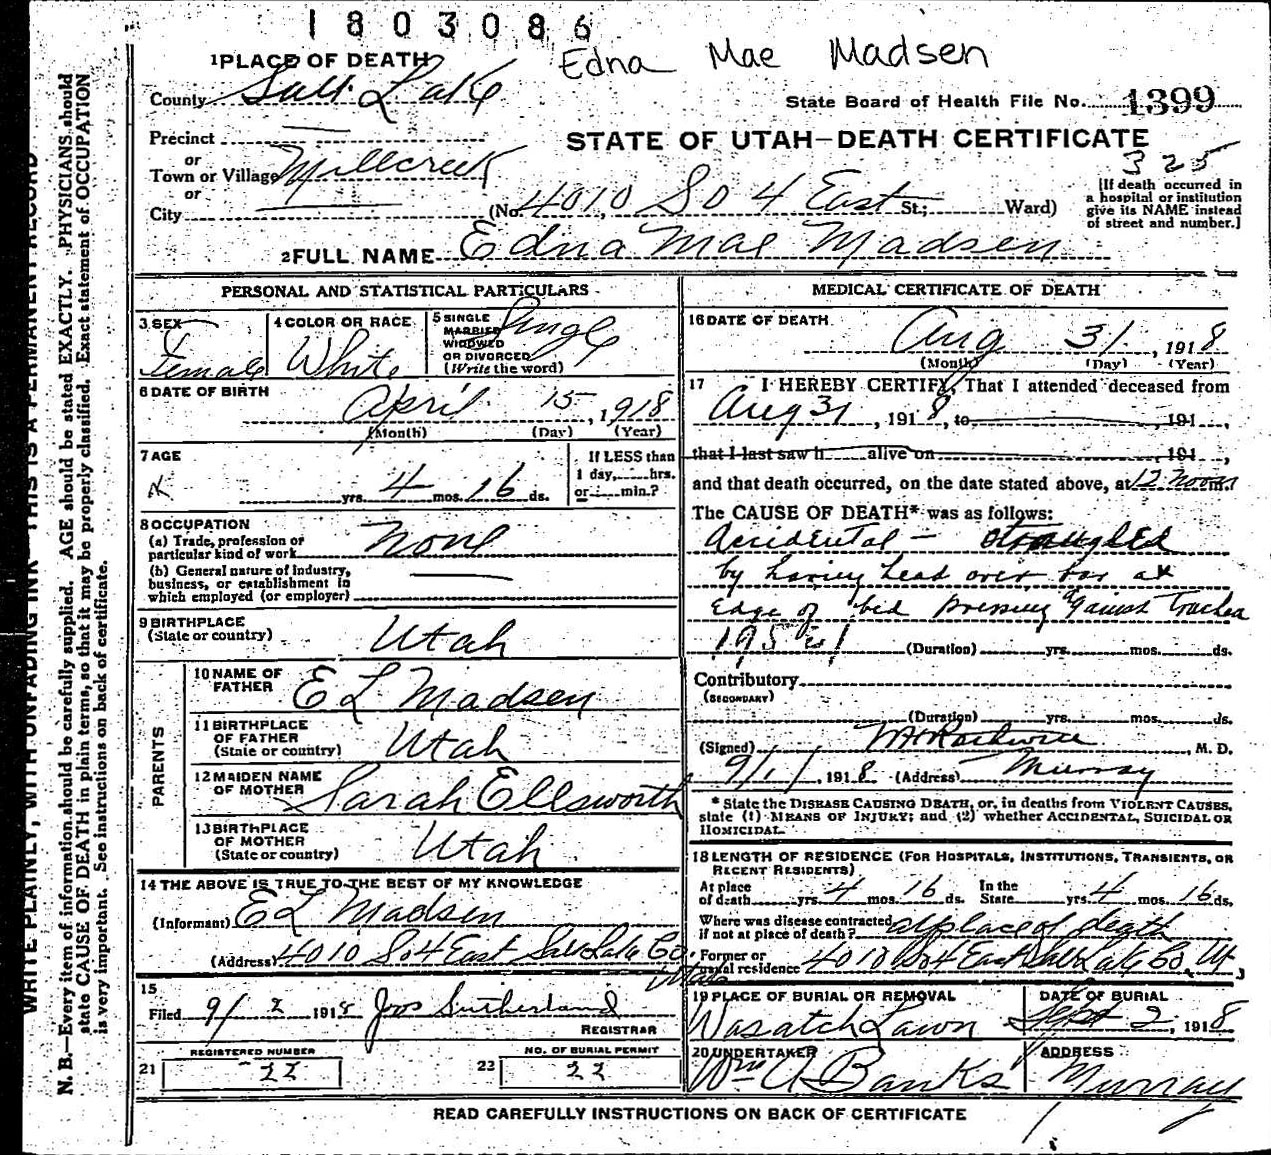 1803086
Edna Mae Madsen
1 PLACE OF DEATH
County Salt Lake
State Board of Health File No. 1399
Precinct
STATE OF UTAH—DEATH CERTIFICATE
or
Town or Village Millcreek
325
or
City (No. 4010 So 4 East St.; Ward)
[If death occurred in a hospital or institution give its NAME instead of street and number.]
2 FULL NAME Edna Mae Madsen
PERSONAL AND STATISTICAL PARTICULARS
3 SEX Female
4 COLOR OR RACE White
5 SINGLE MARRIED WIDOWED OR DIVORCED (Write the word) Single
6 DATE OF BIRTH April 15, 1918
(Month) (Day) (Year)
7 AGE
yrs. 4 mos. 16 ds.
If LESS than 1 day, hrs. or min.?
8 OCCUPATION
(a) Trade, profession or particular kind of work None
(b) General nature of industry, business, or establishment in which employed (or employer)
9 BIRTHPLACE
(State or country) Utah
PARENTS
10 NAME OF FATHER E L Madsen
11 BIRTHPLACE OF FATHER (State or country) Utah
12 MAIDEN NAME OF MOTHER Sarah Ellsworth
13 BIRTHPLACE OF MOTHER (State or country) Utah
14 THE ABOVE IS TRUE TO THE BEST OF MY KNOWLEDGE
(Informant) E L Madsen
(Address) 4010 So 4 East Salt Lake Co. Utah
15
Filed 9/2 1918 Jos Sutherland
REGISTRAR
REGISTERED NUMBER
21 22
NO. OF BURIAL PERMIT
22 22
MEDICAL CERTIFICATE OF DEATH
16 DATE OF DEATH Aug 31, 1918
(Month) (Day) (Year)
17 I HEREBY CERTIFY, That I attended deceased from
Aug 31, 1918, to 191
that I last saw h alive on 191 ,
and that death occurred, on the date stated above, at 12 noon m.
The CAUSE OF DEATH* was as follows:
Accidental — strangled
by having head over bar at
Edge of bed pressing against Trachea
195
(Duration) yrs. mos. ds.
Contributory
(SECONDARY)
(Duration) yrs. mos. ds.
(Signed) M. D.
9/1/, 1918 (Address) Murray
* State the DISEASE CAUSING DEATH, or, in deaths from VIOLENT CAUSES,
state (1) MEANS OF INJURY; and (2) whether ACCIDENTAL, SUICIDAL OR
HOMICIDAL.
18 LENGTH OF RESIDENCE (FOR HOSPITALS, INSTITUTIONS, TRANSIENTS, OR
RECENT RESIDENTS)
At place of death yrs. 4 mos. 16 ds. In the State yrs. 4 mos. 16 ds.
Where was disease contracted if not at place of death? at place of death
Former or usual residence 4010 So 4 East Salt Lake Co, Ut,
19 PLACE OF BURIAL OR REMOVAL Wasatch Lawn
DATE OF BURIAL Sept 2, 1918
20 UNDERTAKER Wm A Banks
ADDRESS Murray
READ CAREFULLY INSTRUCTIONS ON BACK OF CERTIFICATE
WRITE PLAINLY, WITH UNFADING INK—THIS IS A PERMANENT RECORD
N. B.—Every item of information should be carefully supplied. AGE should be stated EXACTLY. PHYSICIANS should
state CAUSE OF DEATH in plain terms, so that it may be properly classified. Exact statement of OCCUPATION
is very important. See instructions on back of certificate.